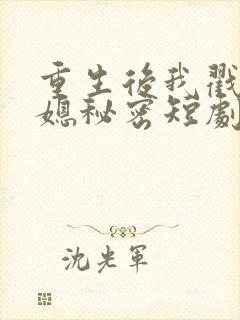 重生後我戳
媳秘密短劇
沈光軍